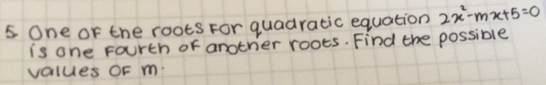 5 One of the roots for quadratic equation 2x²-mx+5=0
is one fourth of another roots. Find the possible
values of m.